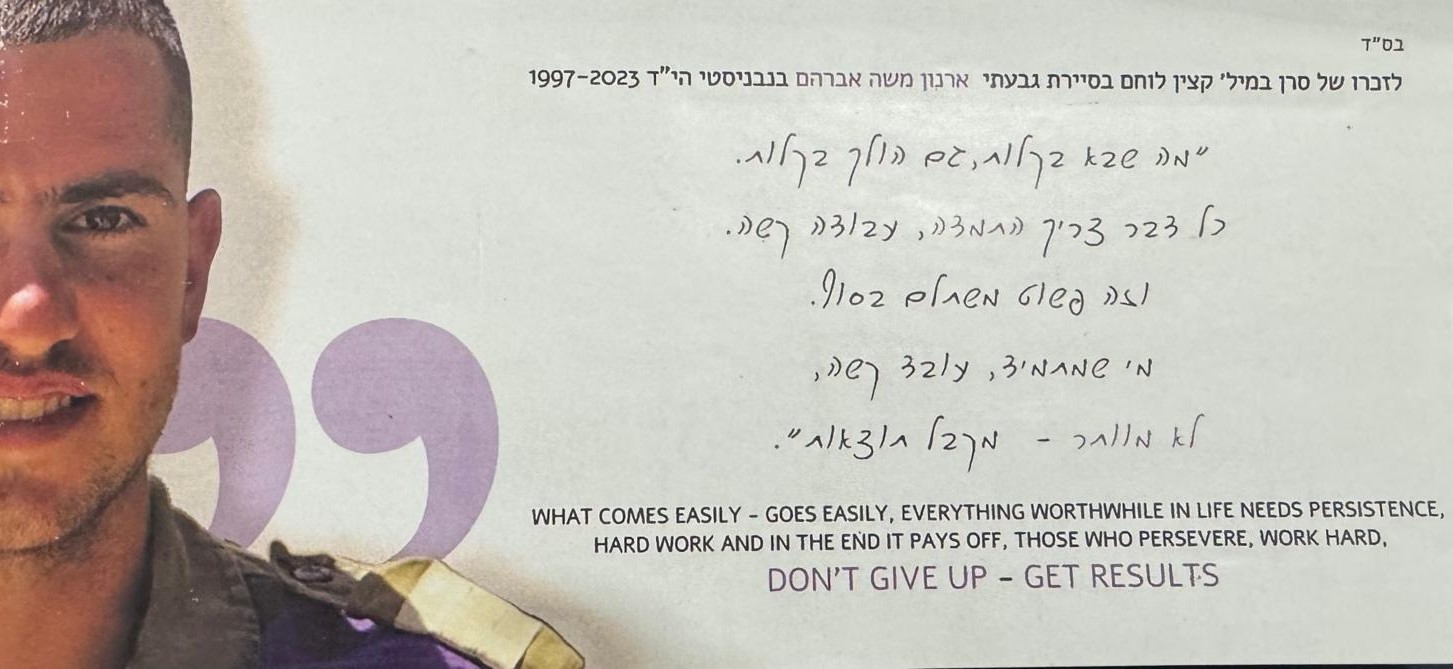 בס"ד
לזכרו של סרן במיל' קצין לוחם בסיירת גבעתי ארנון משה אברהם בנבניסטי הי"ד 1997-2023
"מה שבא בקלות, גם הולך בקלות.
כל דבר צריך התמדה, עבודה קשה.
וזה פשוט משתלם בסוף.
מי שמתמיד, עובד קשה,
לא מוותר - מקבל תוצאות".
WHAT COMES EASILY - GOES EASILY, EVERYTHING WORTHWHILE IN LIFE NEEDS PERSISTENCE,
HARD WORK AND IN THE END IT PAYS OFF, THOSE WHO PERSEVERE, WORK HARD,
DON'T GIVE UP - GET RESULTS